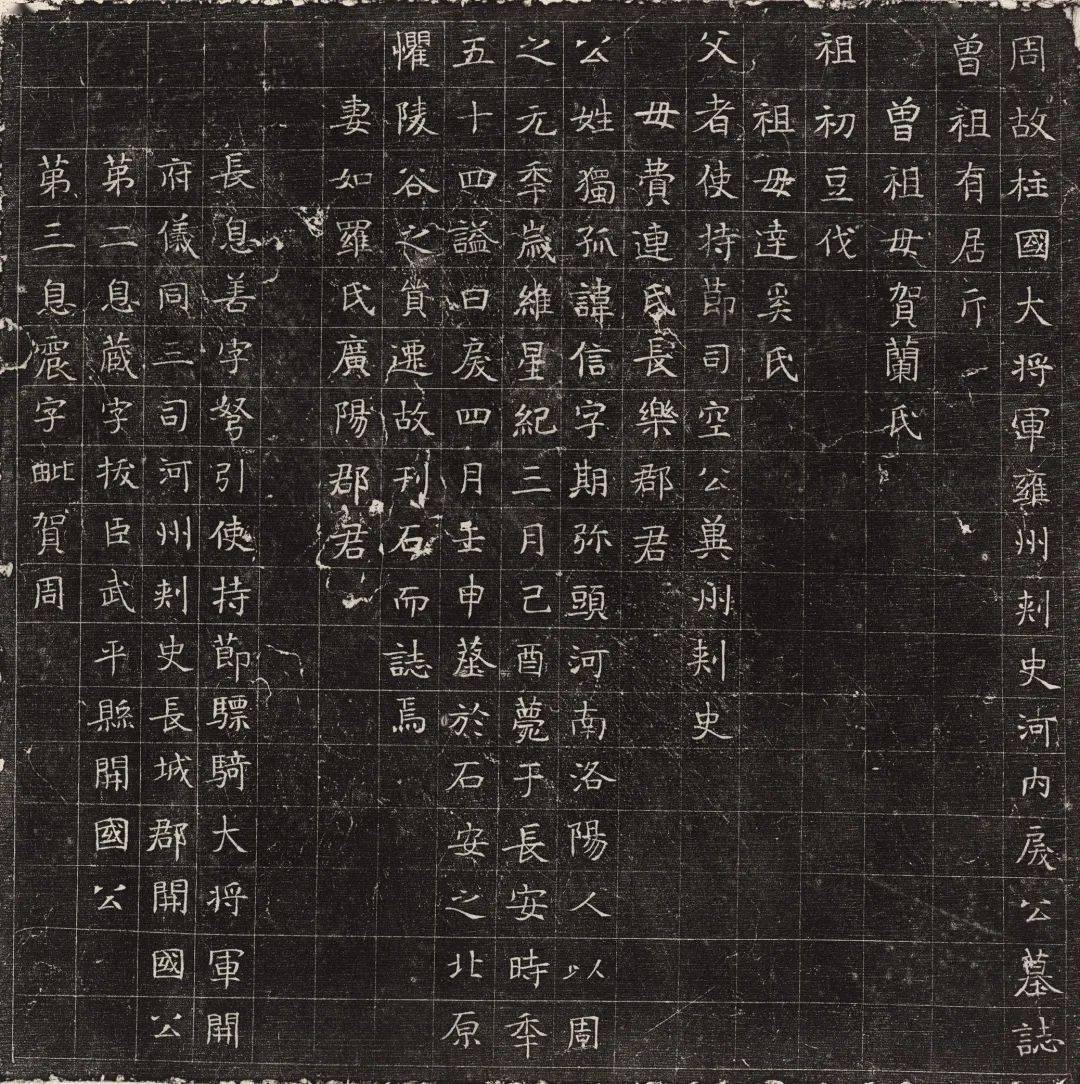 周故柱國大将軍雍州刾史河内戾公墓誌
曾祖有居斤
曾祖母賀蘭氏
祖初豆伐
祖母達奚氏
父者使持節司空公兾州刾史
母費連氏長樂郡君
公姓獨孤諱信字期弥頭河南洛陽人以周
之元秊歲維星紀三月己酉薨于長安時秊
五十四謚曰戾四月壬申葬於石安之北原
懼陵谷之貿遷故刊石而誌焉
妻如羅氏廣陽郡君
長息善字弩引使持節驃騎大将軍開
府儀同三司河州刾史長城郡開國公
第二息藏字拔臣武平縣開國公
第三息震字毗賀周